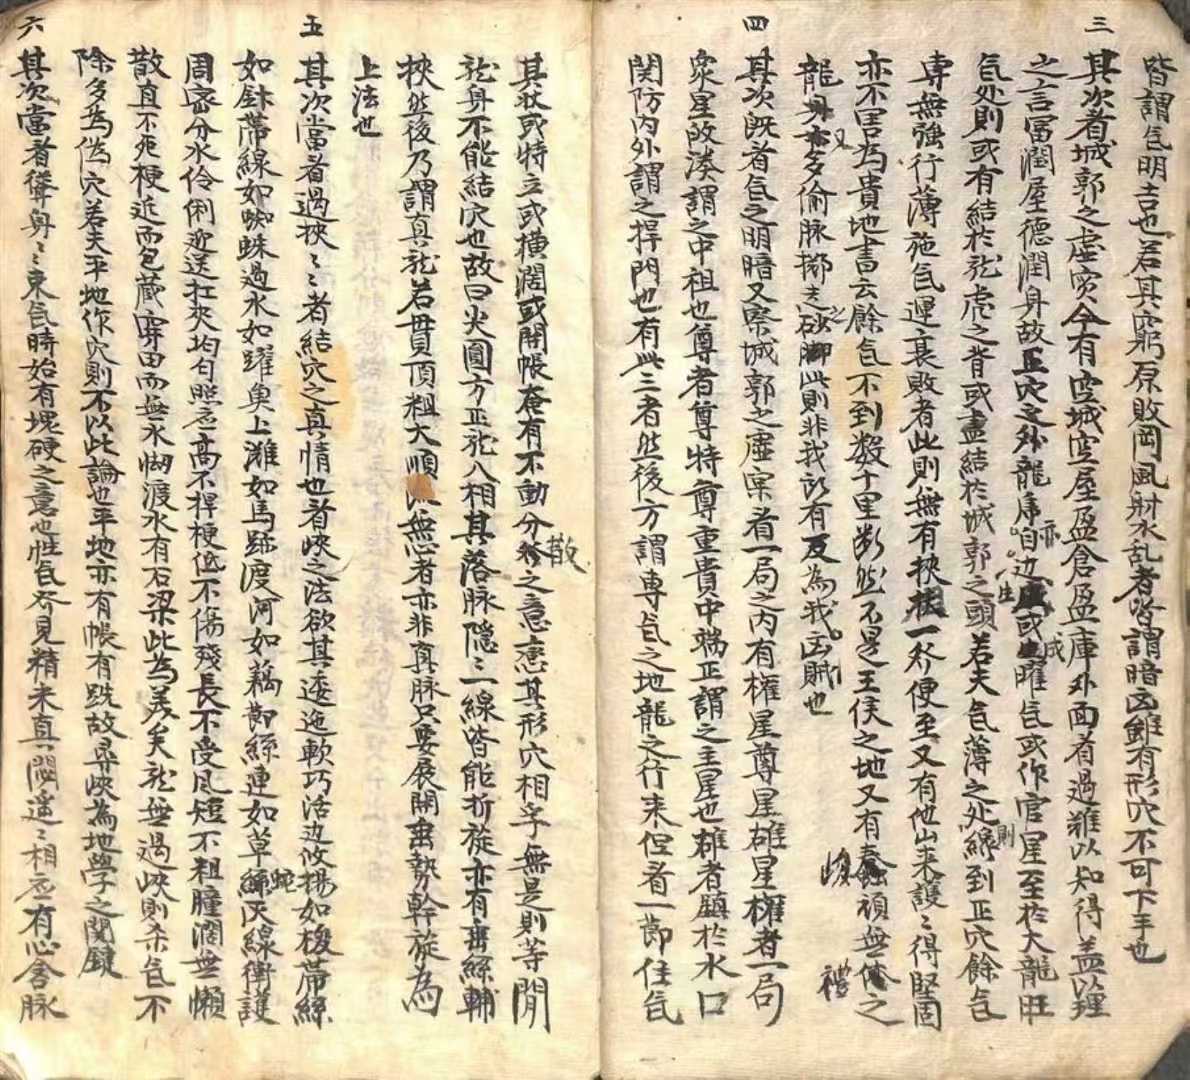 皆謂气明吉也若其窮原敗岡風射水乱者皆謂暗凶雖有形穴不可下手也
三
其次者城郭之虚实今有空城空屋盈倉盈庫外面看過难以知得盖以理
之言富潤屋德潤身故正穴之外龍虎自边或曜气或作官星至於大龍旺
气处則或有結於龍虎之背或盡結於城郭之頭若夫气薄之处則到正穴餘气
専無強行薄施气運衰敗者此則無有挾一斧便至又有他山来護〻得堅固
亦不害為貴地書云餘气不到数十里断然不是王侯之地又有蠢頑無之
龍身多偷脉去砂脚此則非我所有反為我凶賊也
四
其次既者气之明暗又察城郭之虚実看一局之内有權星尊星雄星權者一局
衆星故湊謂之中祖也尊者尊特尊重貴中端正謂之主星也雄者鎮於水口
関防内外謂之捍門也有此三者然後方謂専气之地龍之行来但看一節住气
其状或特立或横濶或開帳奄有不動分散之意其形穴相乎無是則等閒
龍身不能結穴也故曰火圓方正龍八相其落脉隐〻一線皆能折旋亦有亜絲輔
挾然後乃謂真龍若貫頂粗大順無者亦非真脉只要展開亜勢幹旋為
上法也
五
其次當看過挾〻者結穴之真情也看峽之法欲其逶迤軟巧活边攸揚如梭帶絲
如針帶線如蜘蛛過水如躍魚上灘如馬跡渡河如藕節絲連如草蛇灰線衛護
周密分水伶俐迎送扛夾均匀照应高不捍梗低不傷殘長不受風短不粗腫濶無懒
散直不死梗近而包藏穿田而無水渡水有石梁此為美矣龍無過峽則杀气不
除多為偽穴若夫平地作穴則不以此論也平地亦有帳有跌故尋峽為地學之関鍵
六
其次當看〻束气時始有塊硬之意也性气斧見精来真〻相应有心含脉